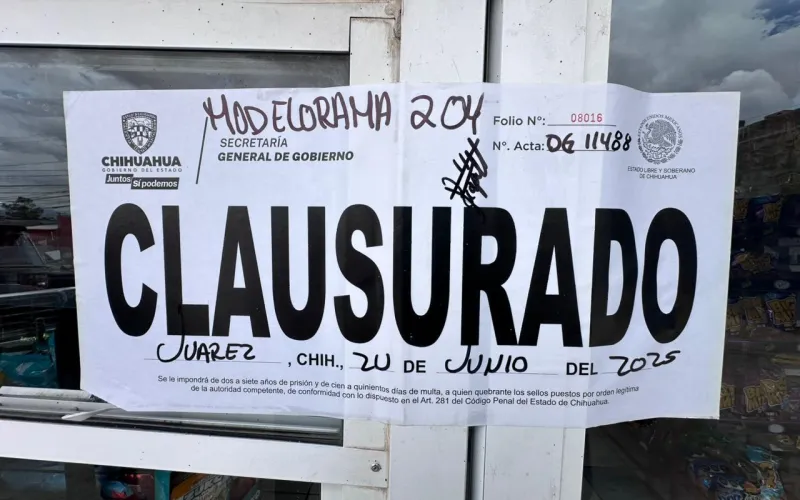 MODELORAMA 204
Folio Nº: 08016
Nº. Acta: OG 11488
CHIHUAHUA
GOBIERNO DEL ESTADO
Juntos Sí podemos
SECRETARÍA
GENERAL DE GOBIERNO
ESTADO LIBRE Y SOBERANO
DE CHIHUAHUA
CLAUSURADO
JUAREZ, CHIH., 20 DE JUNIO DEL 2025
Se le impondrá de dos a siete años de prisión y de cien a quinientos días de multa, a quien quebrante los sellos puestos por orden legítima
de la autoridad competente, de conformidad con lo dispuesto en el Art. 281 del Código Penal del Estado de Chihuahua.